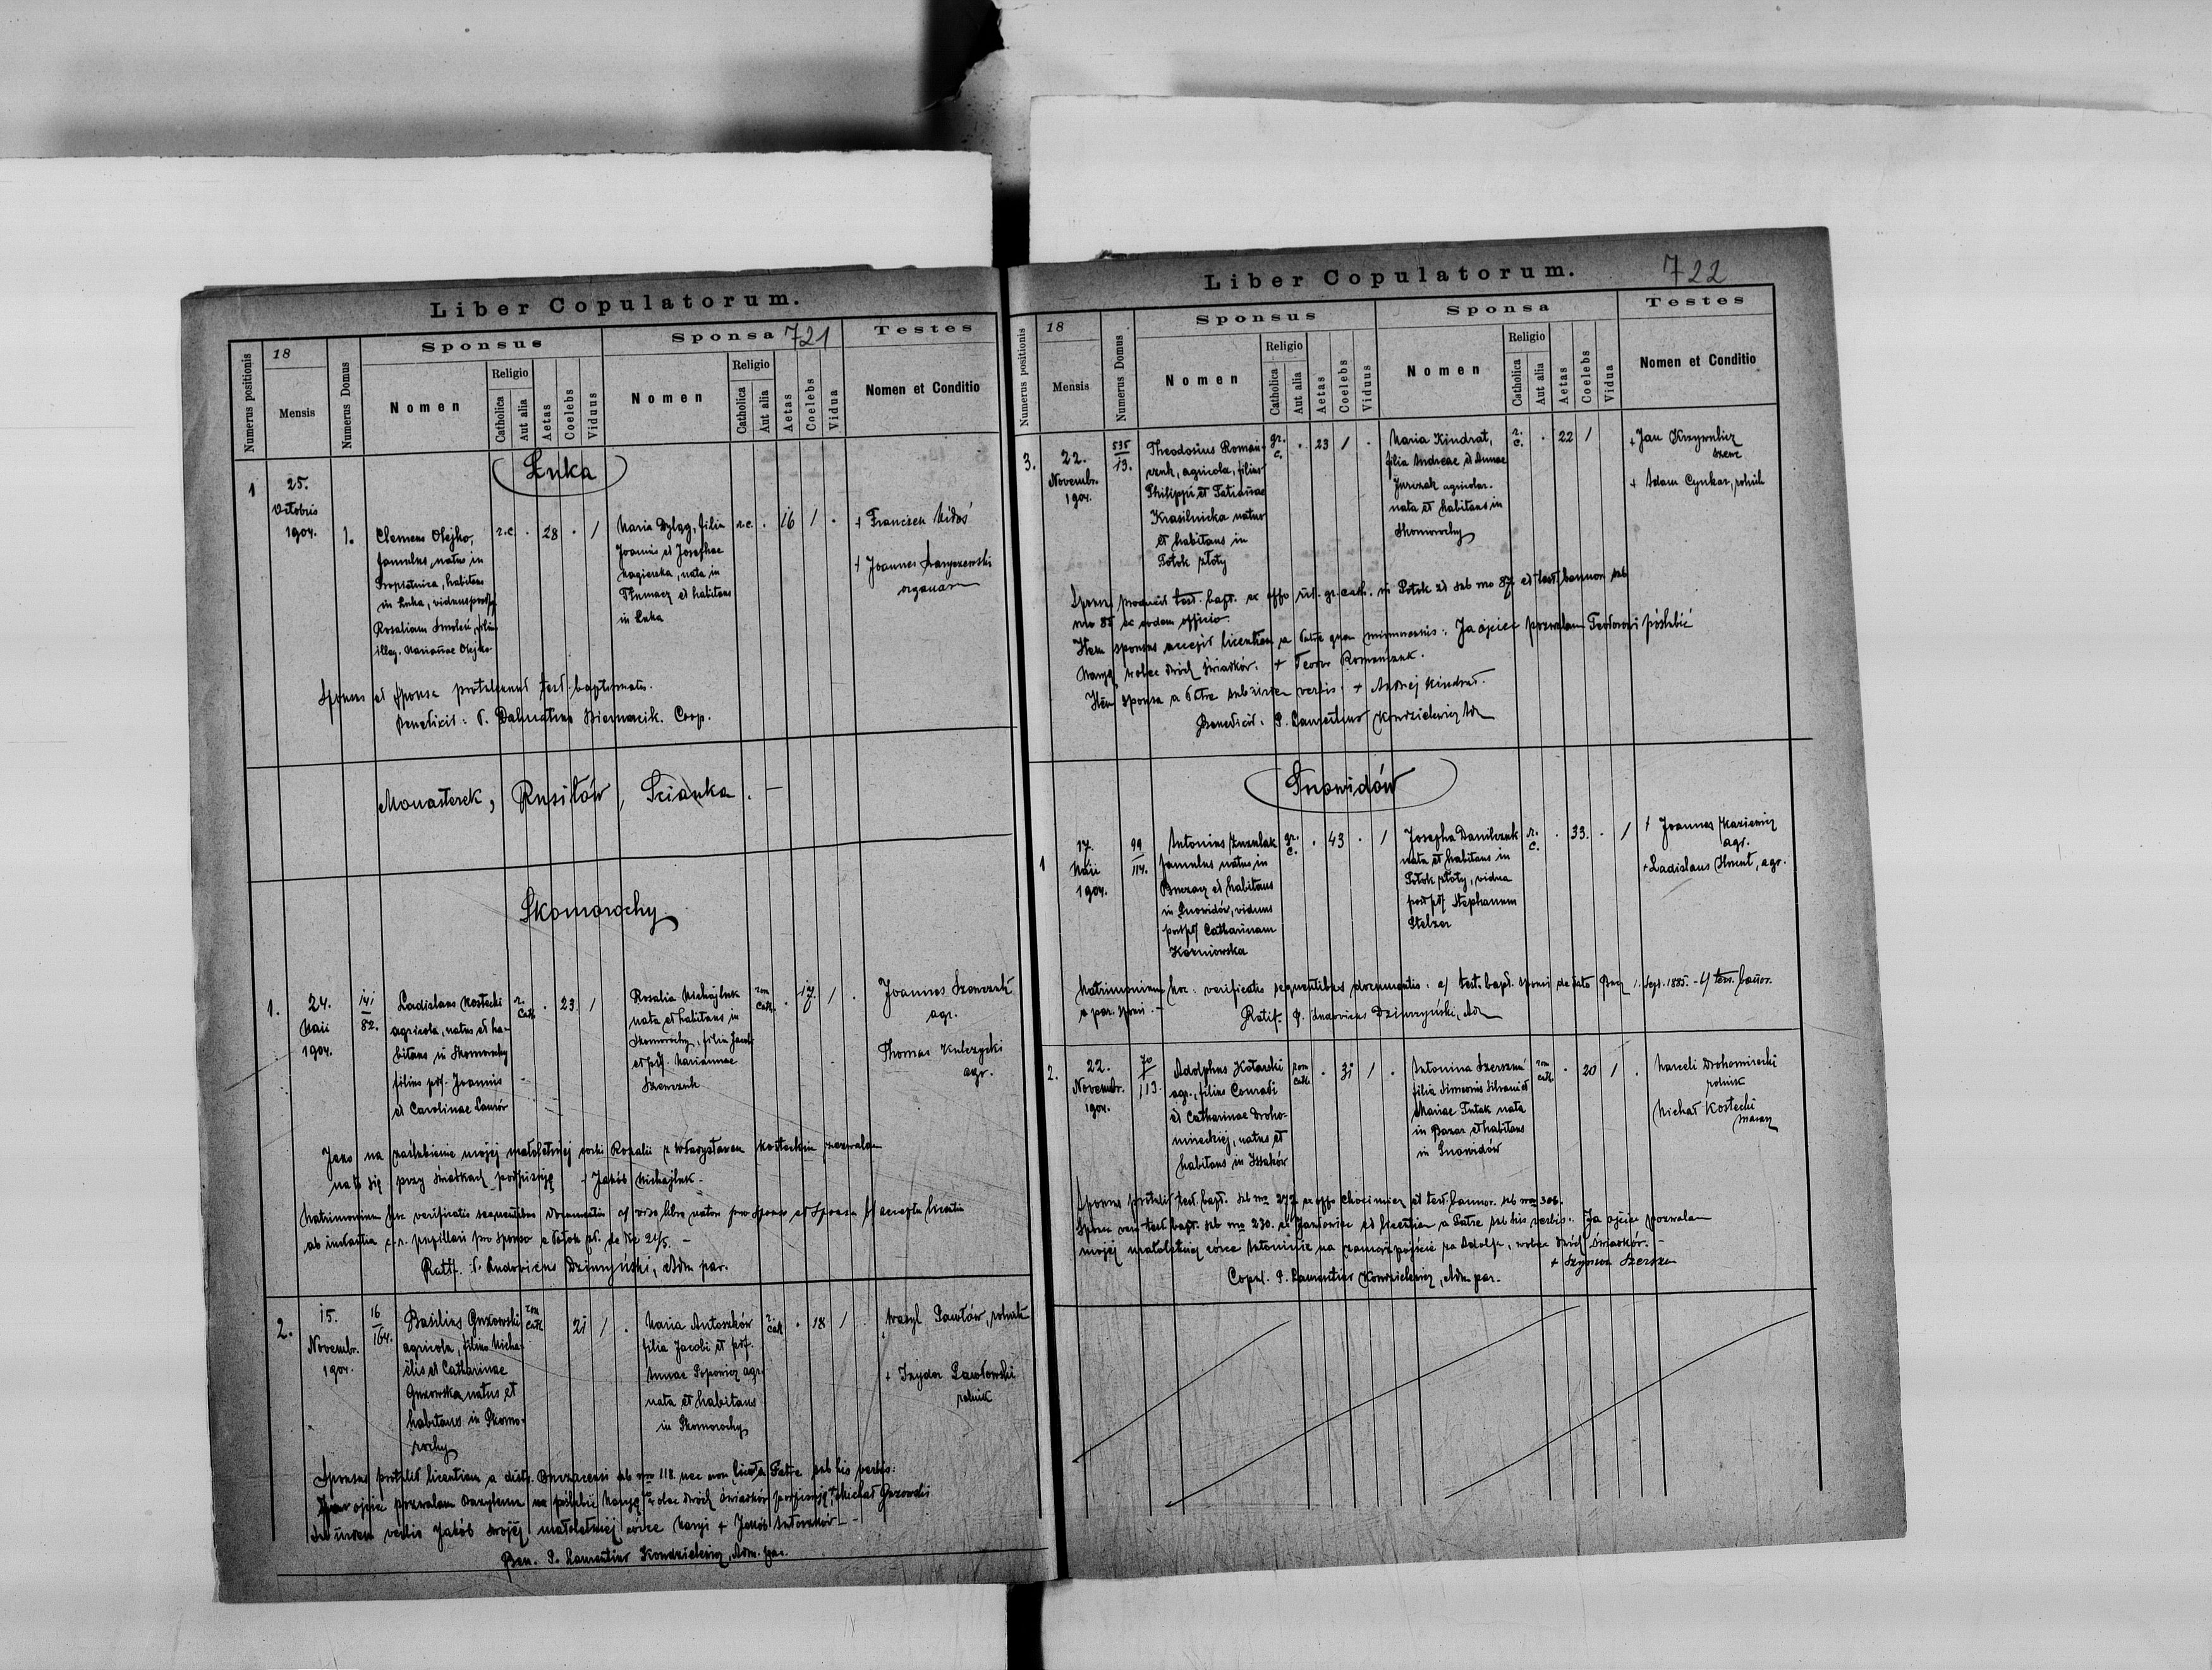 Liber Copulatorum.
721
Numerus positionis
18
Mensis
Numerus Domus
Sponsus
Nomen
Religio
Catholica
Aut alia
Aetas
Coelebs
Viduus
Sponsa
Nomen
Religio
Catholica
Aut alia
Aetas
Coelebs
Vidua
Testes
Nomen et Conditio
Łuka
1
25.
Octobris
1904.
1.
Clemens Olejko,
famulus, natus in
habitans
in Łuka, viduus post
Rosaliam Smoleń, filius
illeg. Mariannae Olejko
r.c. . 28 . 1
Maria Dyląg, filia
Joannis et Josephae
nata in
Tłumacz et habitans
in Łuka
r.c. . 16 1 .
+ Franciszek Midoś
+ Joannes
Sponsus et Sponsa test. baptismatis.
Benedixit: P. Dalmatius Biernacik. Coop.
Monasterek, Rusiłów, Ścianka. —
Skomorochy
1.
24.
Maii
1904.
141
82.
Ladislaus Kostecki
agricola, natus et ha-
bitans in Skomorochy
filius pdf. Joannis
et Carolinae Laurów
r.
cath. . 23 1
Rosalia Michajluk
nata et habitans in
Skomorochy, filia Jacobi
et pdf. Mariannae
Szewczuk
rom
cath. . 17. 1 .
Joannes Szewczuk
agr.
Thomas Kulczycki
agr.
Jako na zaślubienie mojej małoletniej córki Rozalii z Władysławem Kosteckim zezwalam
na to się przy świadkach podpisuję + Jakób Michajluk.
Matrimonium hoc verificatis sequentibus documentis a/ libro nator. pro Sponso et Sponsa b/ licentia
ab instantia c. r. pupillari pro sponso e Potok zł. de die 21/5. —
Ratif. P. Ludovicus Dziurzyński, Adm. par.
2.
15.
Novembr.
1904.
16
164.
Basilius Guzowski
agricola, filius Micha-
ëlis et Catharinae
Guzowska natus et
habitans in Skomo-
rochy
rom
cath. 21 1 .
Maria Antoszków
filia Jacobi et pdf.
Annae Popowicz agr.
nata et habitans
in Skomorochy
r.
cath . 18 1
Wasyl Pawłów, rolnik
+ Izydor Pawłowski
rolnik
Sponsus licentiam a Buczacensi sub nro 118 nec non Patre sub his verbis:
ojciec pozwalam na poślubić Maryę wobec dwóch świadków podpisuję + Michał Guzowski
verbis Jakób swojej małoletniej córce Maryi + Jakób Antoszków —
Ben. P. Laurentius Kondzielewicz, Adm. par.
Liber Copulatorum.
722
Numerus positionis
18
Mensis
Numerus Domus
Sponsus
Nomen
Religio
Catholica
Aut alia
Aetas
Coelebs
Viduus
Sponsa
Nomen
Religio
Catholica
Aut alia
Aetas
Coelebs
Vidua
Testes
Nomen et Conditio
3.
22.
Novembr.
1904.
535
13.
Theodosius Roman-
czuk, agricola, filius
Philippi et Tatiannae
Krasilnicka natus
et habitans in
Potok złoty
gr.
c. . 23 1 .
Maria Kindrat,
filia Andreae et Annae
Jurczak agricolar.
nata et habitans in
Skomorochy
r.
c. . 22 1
+ Jan
szewc
+ Adam Cynkar, rolnik
Sponsus produxit test. bapt. ex offo rit. gr. cath. in Potok zł sub nro 87. et test. bannor. sub
nro 88 ex eodem officio.
Item sponsus accepit licentiam a Patre Ja ojciec pozwalam Teodorowi poślubić
Maryę wobec dwóch świadków. + Teodor Romańczuk.
Item sponsa a Patre verbis: + Andrej Kindrat.
Benedixit: P. Laurentius Kondzielewicz Adm
Snowidów
1
17.
Maii
1904.
99
114.
Antonius
famulus natus in
Buczacz et habitans
in Snowidów, viduus
post pdf Catharinam
Kozniowska
gr.
c. . 43 . 1
Josepha Danilczuk
nata et habitans in
Potok złoty, vidua
post pdf Stephanum
Stelzer
r.
c. . 33. . 1
+ Joannes Maziewicz
agr.
+ Ladislaus Hnent, agr.
Matrimonium hoc: verificatis sequentibus documentis: a/ test. bapt. sponsi de dato Bucz 1. Sept. 1885. — b/ test. bannor.
e par. sponsi. —
Ratif. P. Ludovicus Dziurzyński, Adm
2.
22.
Novembr.
1904.
70
113.
Adolphus Kotarski
agr., filius Conradi
et Catharinae Droho-
mireckiej, natus et
habitans in Isaków
rom
cath. . 31 1 .
Antonina Szerszeń
filia Simeonis Silvani et
Mariae Putak nata
in Bazar et habitans
in Snowidów
rom
cath. . 20 1 .
Marceli Drohomirecki
rolnik
Michał Kostecki
Sponsus test. bapt. sub nro 277 ex offo Chocimierz et test. bannor. sub nro 306.
Sponsa vero test bapt. sub nro 230. ex Jazłowiec et licentiam a Patre sub his verbis: Ja ojciec pozwalam
mojej małoletniej córce Antoninie na zamąż pójście za Adolfa, wobec dwóch świadków. —
+ Szymon Szerszeń
Copul. P. Laurentius Kondzielewicz, Adm. par.